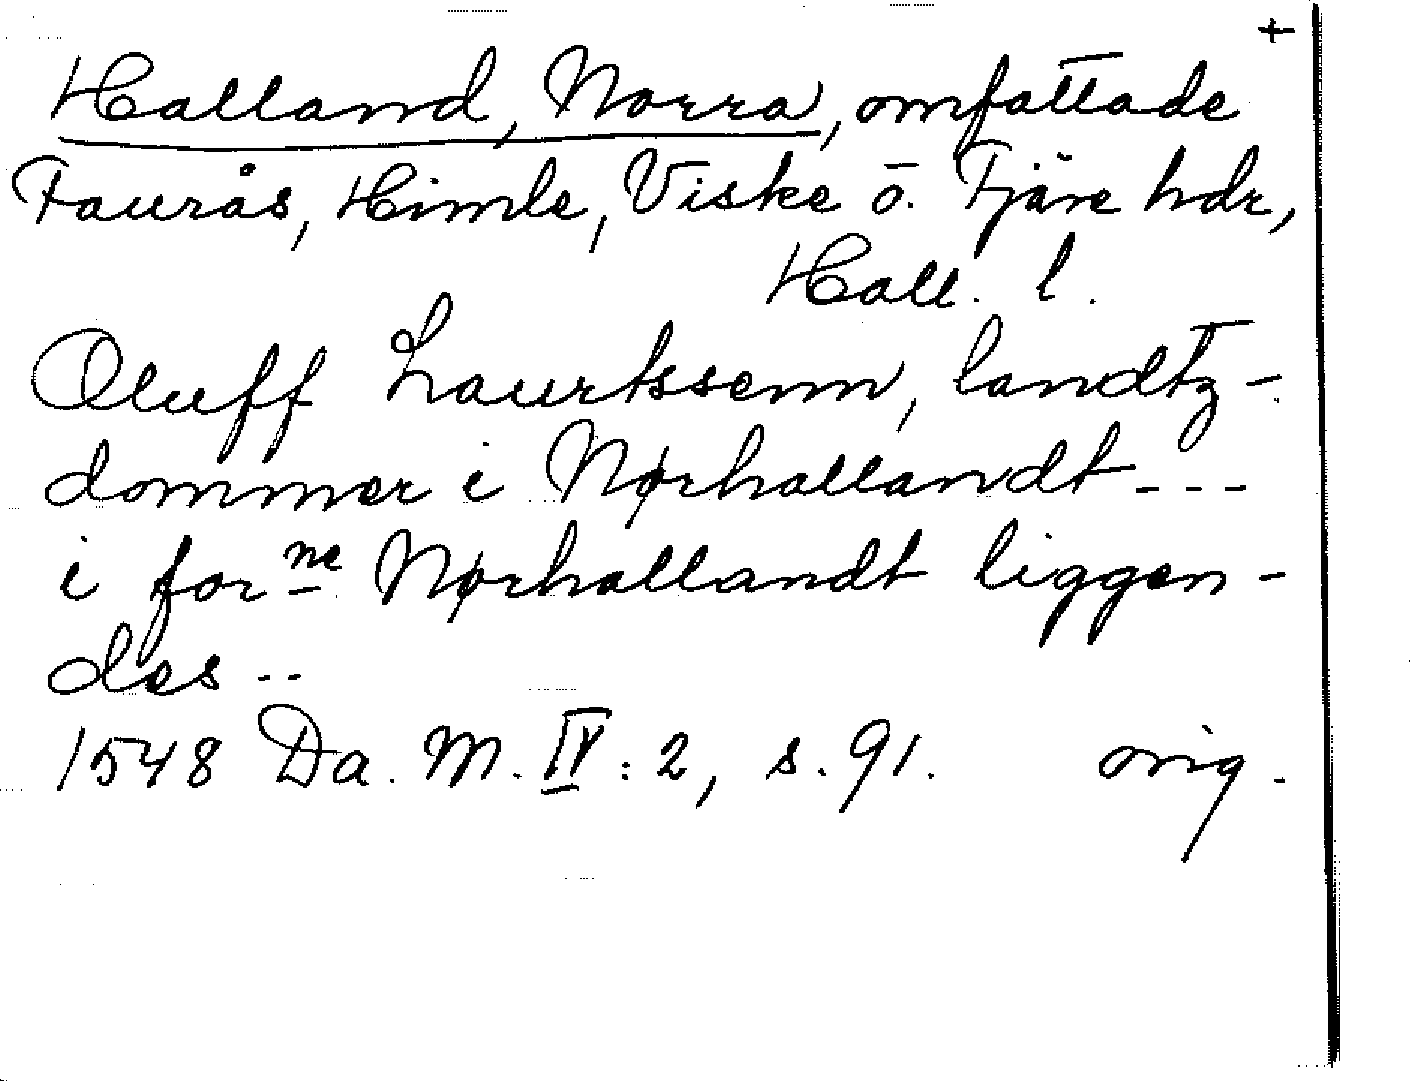 +
Halland, Norra, omfattade
Faurås, Himle, Viske o. Fjäre hdr,
Hall. l.
Oluff Laurtssenn, landtz-
dommer i Nørhallandt - - -
i forne Nørhallandt liggen-
des - -
1548 Da. M. IV : 2, s. 91. orig.